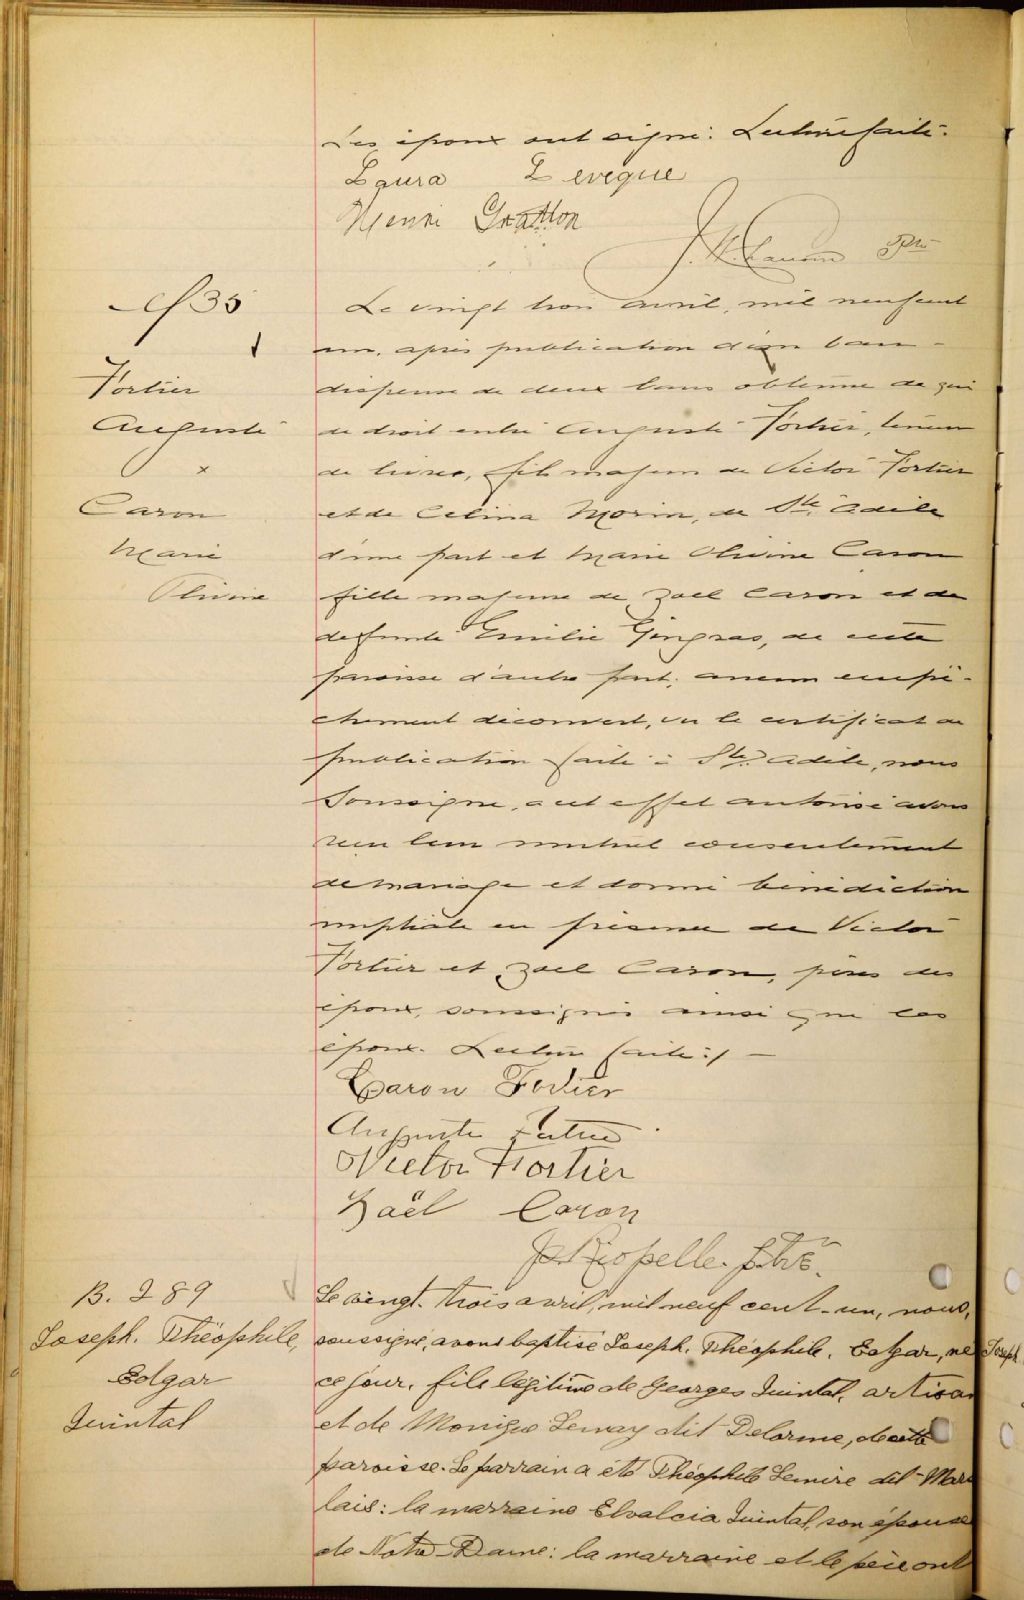 Les époux ont signé: Lecture faite.
Laura Leveque
Henri Gratton
Ptre
M 35
Le vingt trois avril, mil neuf cent
un, après publication d'un ban
dispense de deux bans obtenue de qui
Fortier
de droit entre Auguste Fortier, teneur
Auguste
de livres, fils majeur de Victor Fortier
x
et de Celina Morin, de Ste Adèle
Caron
d'une part et Marie Olivine Caron
Marie
fille majeure de Zoel Caron et de
Olivine
defunte Emilie Gingras, de cette
paroisse d'autre part; aucun empê-
chement découvert, vu le certificat de
publication faite à Ste Adèle, nous
soussigné, a cet effet autorisé avons
reçu leur mutuel consentement
de mariage et donné bénédiction
nuptiale en présence de Victor
Fortier et Zoel Caron, pères des
époux, soussignés ainsi que les
époux. Lecture faite:/ —
Caron Fortier
Auguste Fortier
Victor Fortier
Zoël Caron
Riopelle ptre.
B. 289
Le vingt-trois avril, mil neuf cent-un, nous,
Joseph. Théophile,
soussigné, avons baptisé Joseph. Théophile. Edgar, né
Joseph
Edgar
ce jour. fils légitime de Georges Quintal, artisan
Quintal
et de Monique Lemay dit Delorme, de cette
paroisse. Le parrain a été Théophile Lemire dit-Mars
lais: la marraine Quintal, son épouse
de Notre-Dame: la marraine et le père ont